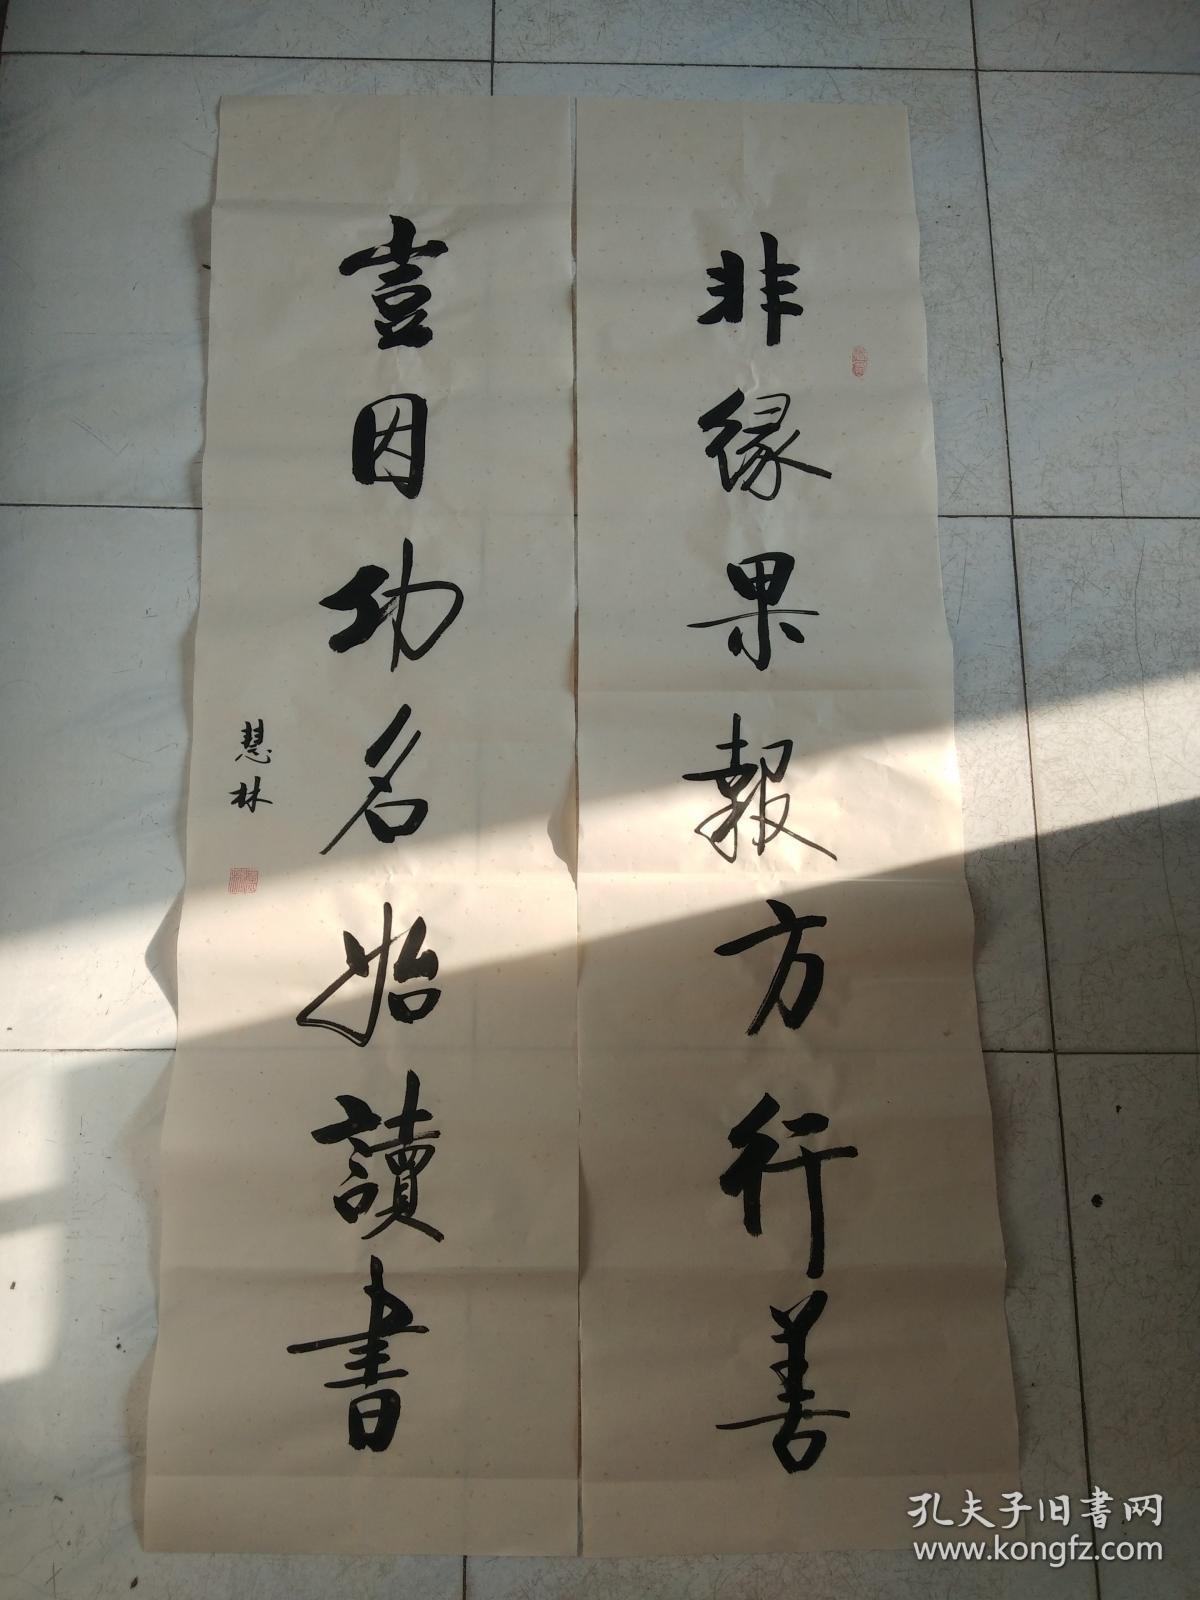 非緣果報方行善
豈因功名始讀書
慧林
孔夫子旧书网
www.kongfz.com